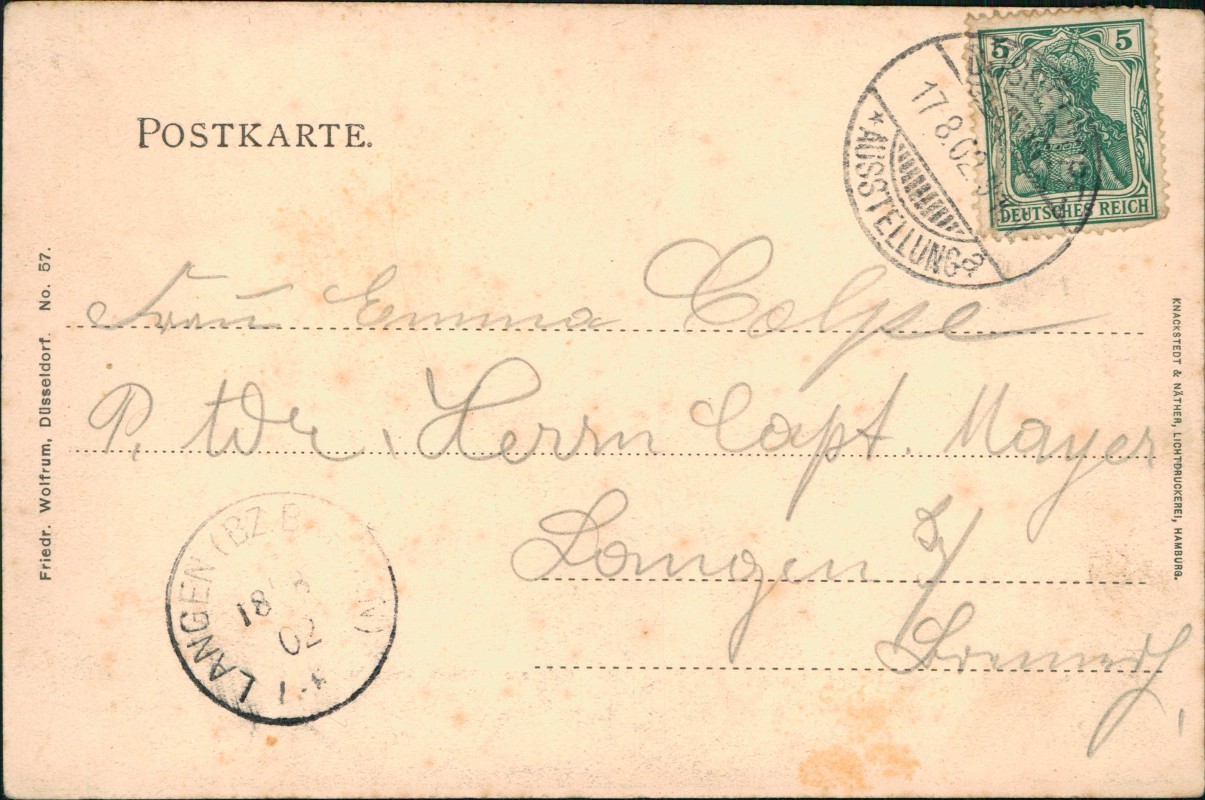 POSTKARTE.
5 5
DEUTSCHES REICH
17.8.02
* AUSSTELLUNG a
Frau Emma Colpe
P. Adr. Herrn Capt. Mayer
Langen b/
LANGEN (BZ B
18 8
02
Friedr. Wolfrum, Düsseldorf. No. 57.
KNACKSTEDT & NÄTHER, LICHTDRUCKEREI, HAMBURG.